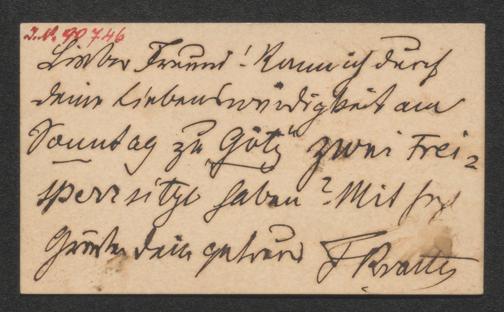 J.N. 90746
Lieber Freund! Kann ich durch
deine Liebenswürdigkeit am
Sonntag zu "Götz" zwei Frei-
sperrsitze haben? Mit
Grüßen dein getreuer